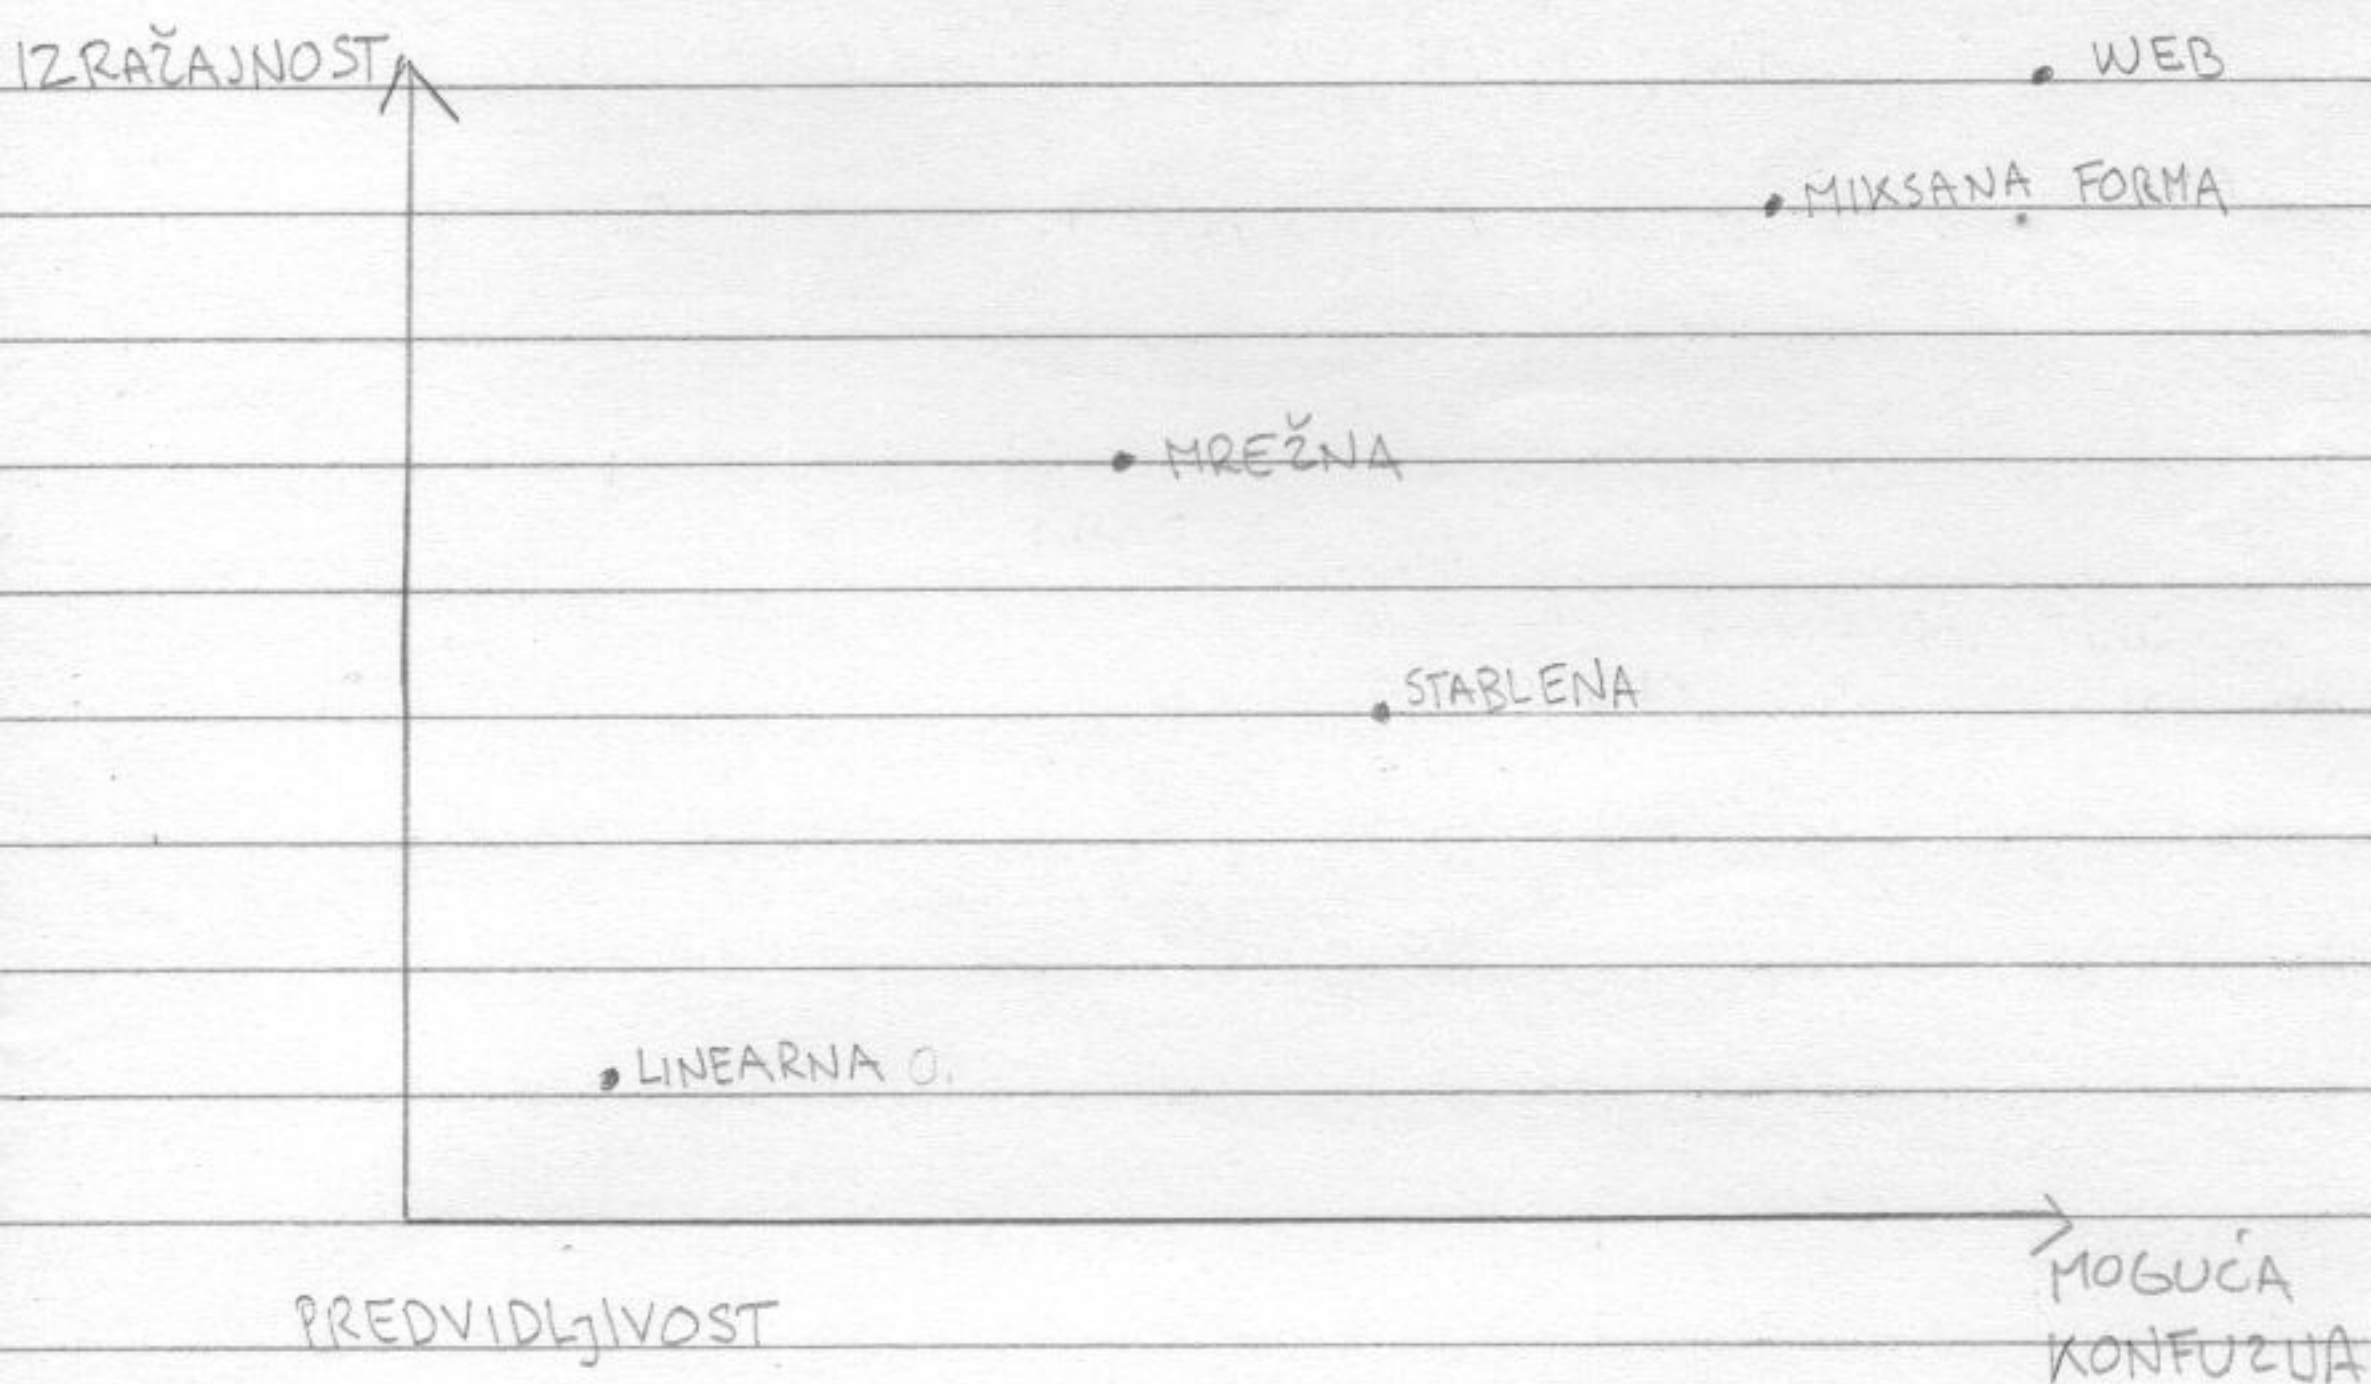 IZRAŽAJNOST
WEB
MIKSANA FORMA
MREŽNA
STABLENA
LINEARNA O.
PREDVIDLjIVOST
MOGUĆA
KONFUZIJA